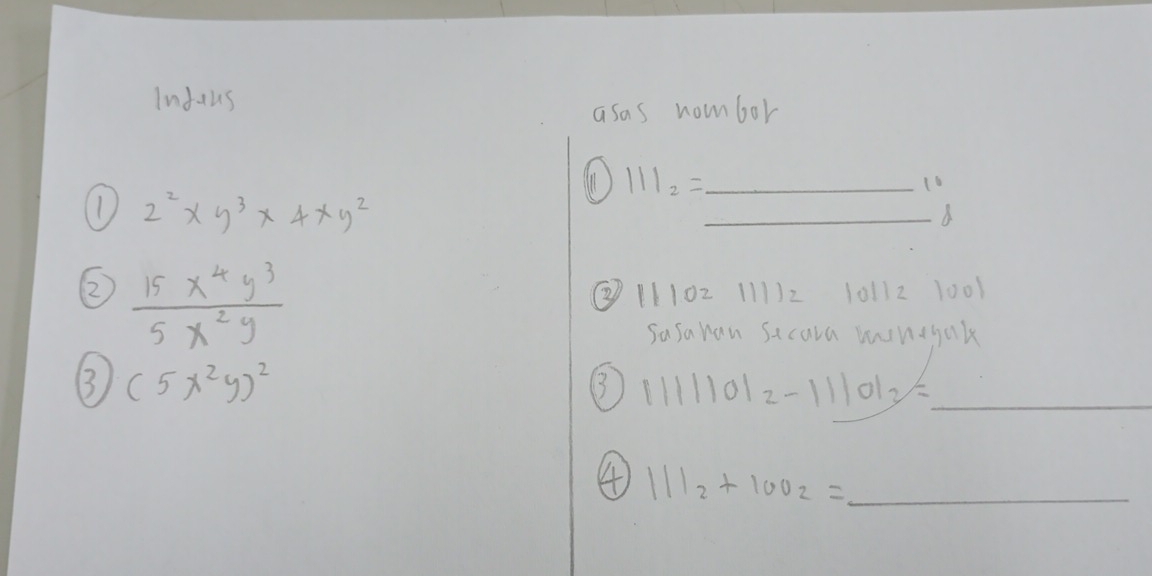 Indeks
① 2² x y³ x 4 x y²
② 15 x⁴ y³
5 x² y
③ (5x²y)²
asas nombor
① 111₂ = __________ 10
__________ 8
② 1110₂ 1111₂ 1011₂ 1001
susunan secara menaik
③ 1111101₂ - 11101₂ = __________
④ 111₂ + 100₂ = __________